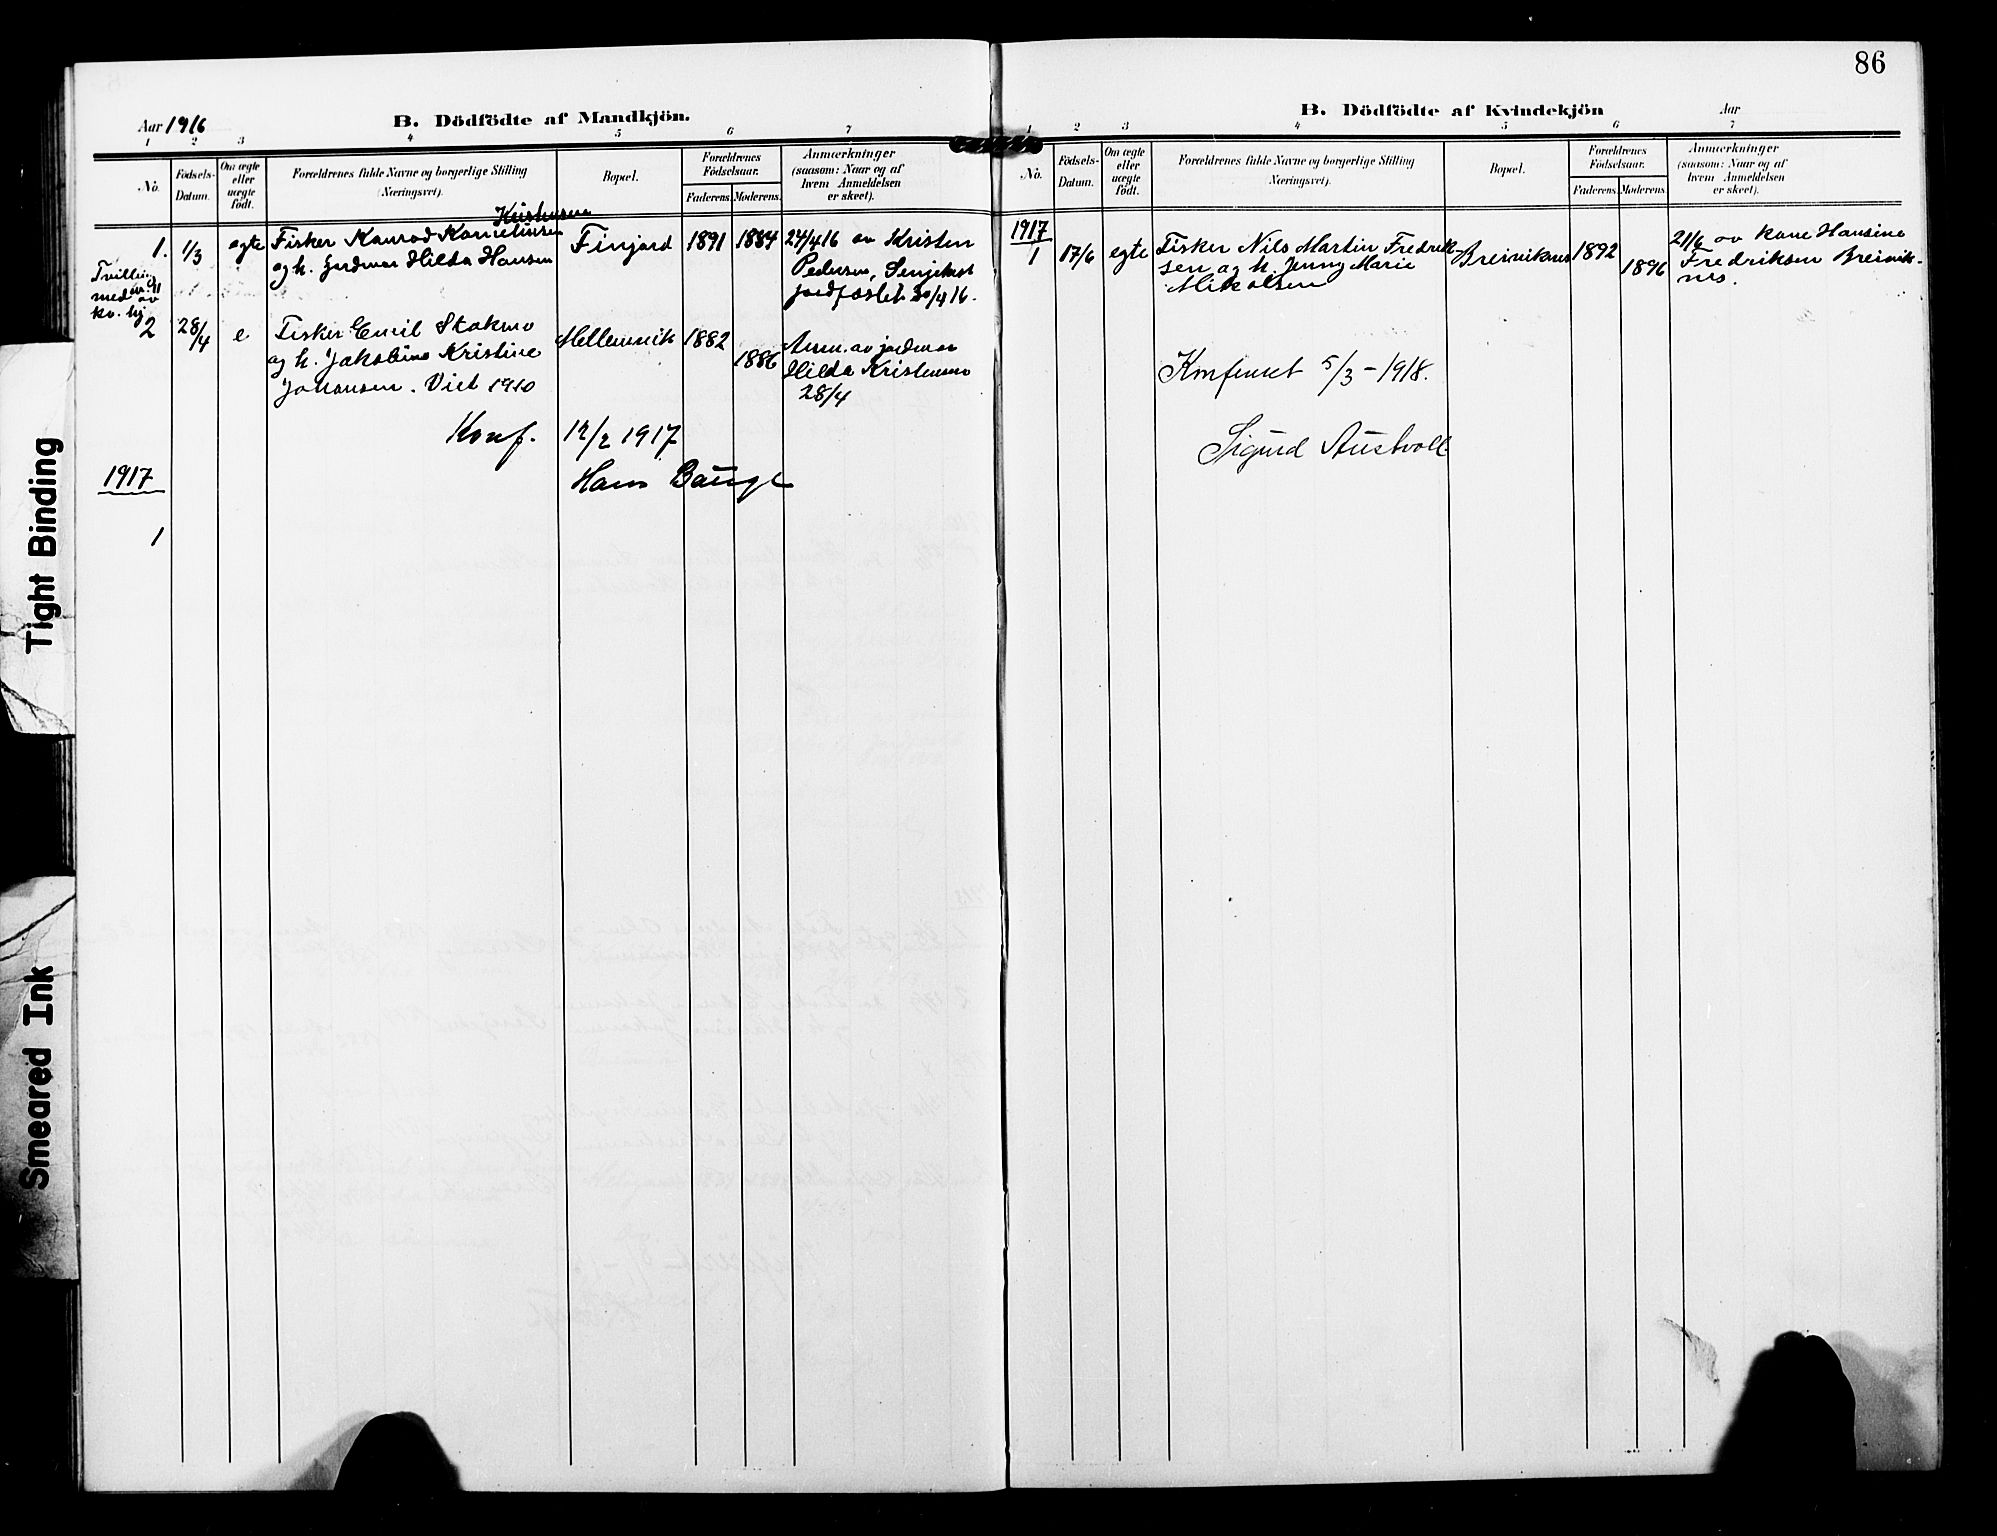 86
Aar 1916
B. Dödfödte af Mandkjön.
1 2 3 4 5 6 7
No.
Födsels-Datum.
Om ægte eller uægte födt.
Forældrenes fulde Navne og borgerlige Stilling
(Næringsvei).
Bopæl.
Forældrenes Födselsaar.
Faderens. Moderens.
Anmærkninger
(saasom: Naar og af
hvem Anmeldelsen
er skeet).
Kristensen
1. 1/3 egte Fisker Konrad Kornelinsen Finjord 1891 1884 27/4 16 av Kristen
og h. jordmor Hilda Hansen Pedersen, Senjehest
jordfæstet 30/4 16.
Tvilling
med nr. 91
av
kv. kj.
2 28/4 e Fisker Emil Stakmo Mellemvik 1882 1886 Anm. av jordmor
og h. Jakobine Kristine Hilda Kristensen
Johansen. Viet 1910 28/4
Konf. 12/2 1917
Hans Bauge
1917
1
B. Dödfödte af Kvindekjön
Aar
1 2 3 4 5 6 7
No.
Födsels-Datum.
Om ægte eller uægte födt.
Forældrenes fulde Navne og borgerlige Stilling
(Næringsvei).
Bopæl.
Forældrenes Födselsaar.
Faderens. Moderens.
Anmærkninger
(saasom: Naar og af
hvem Anmeldelsen
er skeet).
1917
1 17/6 egte Fisker Nils Martin Fredrik- Breiviknes 1892 1896 21/6 av kone Hansine
sen og h. Jenny Marie Fredriksen Breivik-
Mikalsen nes.
Konferert 5/3 - 1918.
Sigurd Austvoll
Tight Binding
Smeared Ink